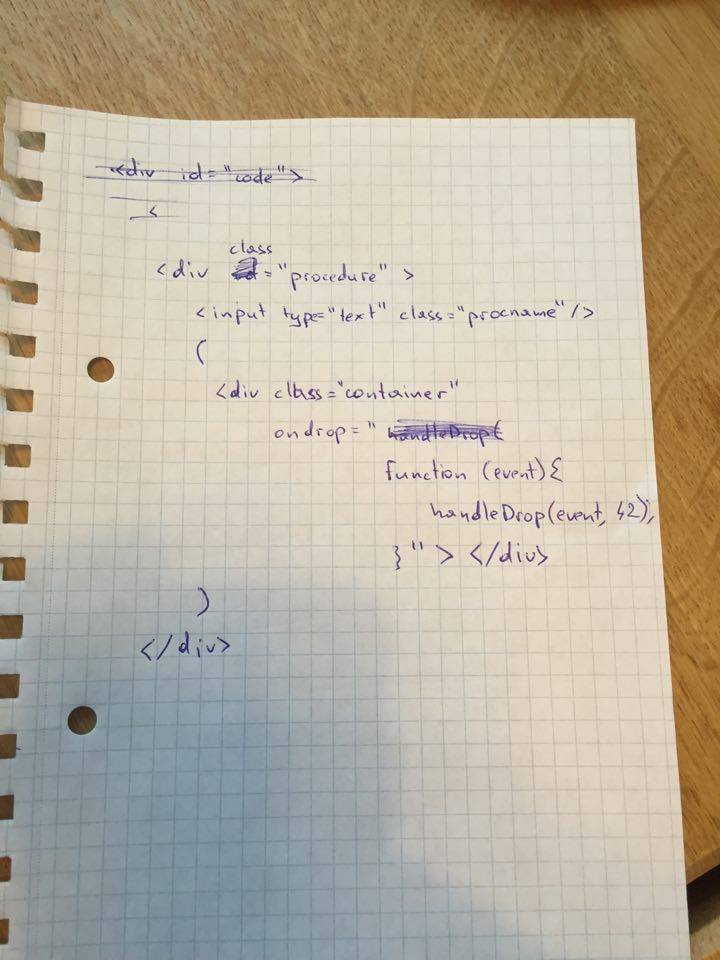 <div id="code">
<
class
<div id="procedure" >
<input type="text" class="procname"/>
(
<div class="container"
ondrop=" handleDrop(
function (event){
handleDrop(event, 42);
}" > </div>
)
</div>